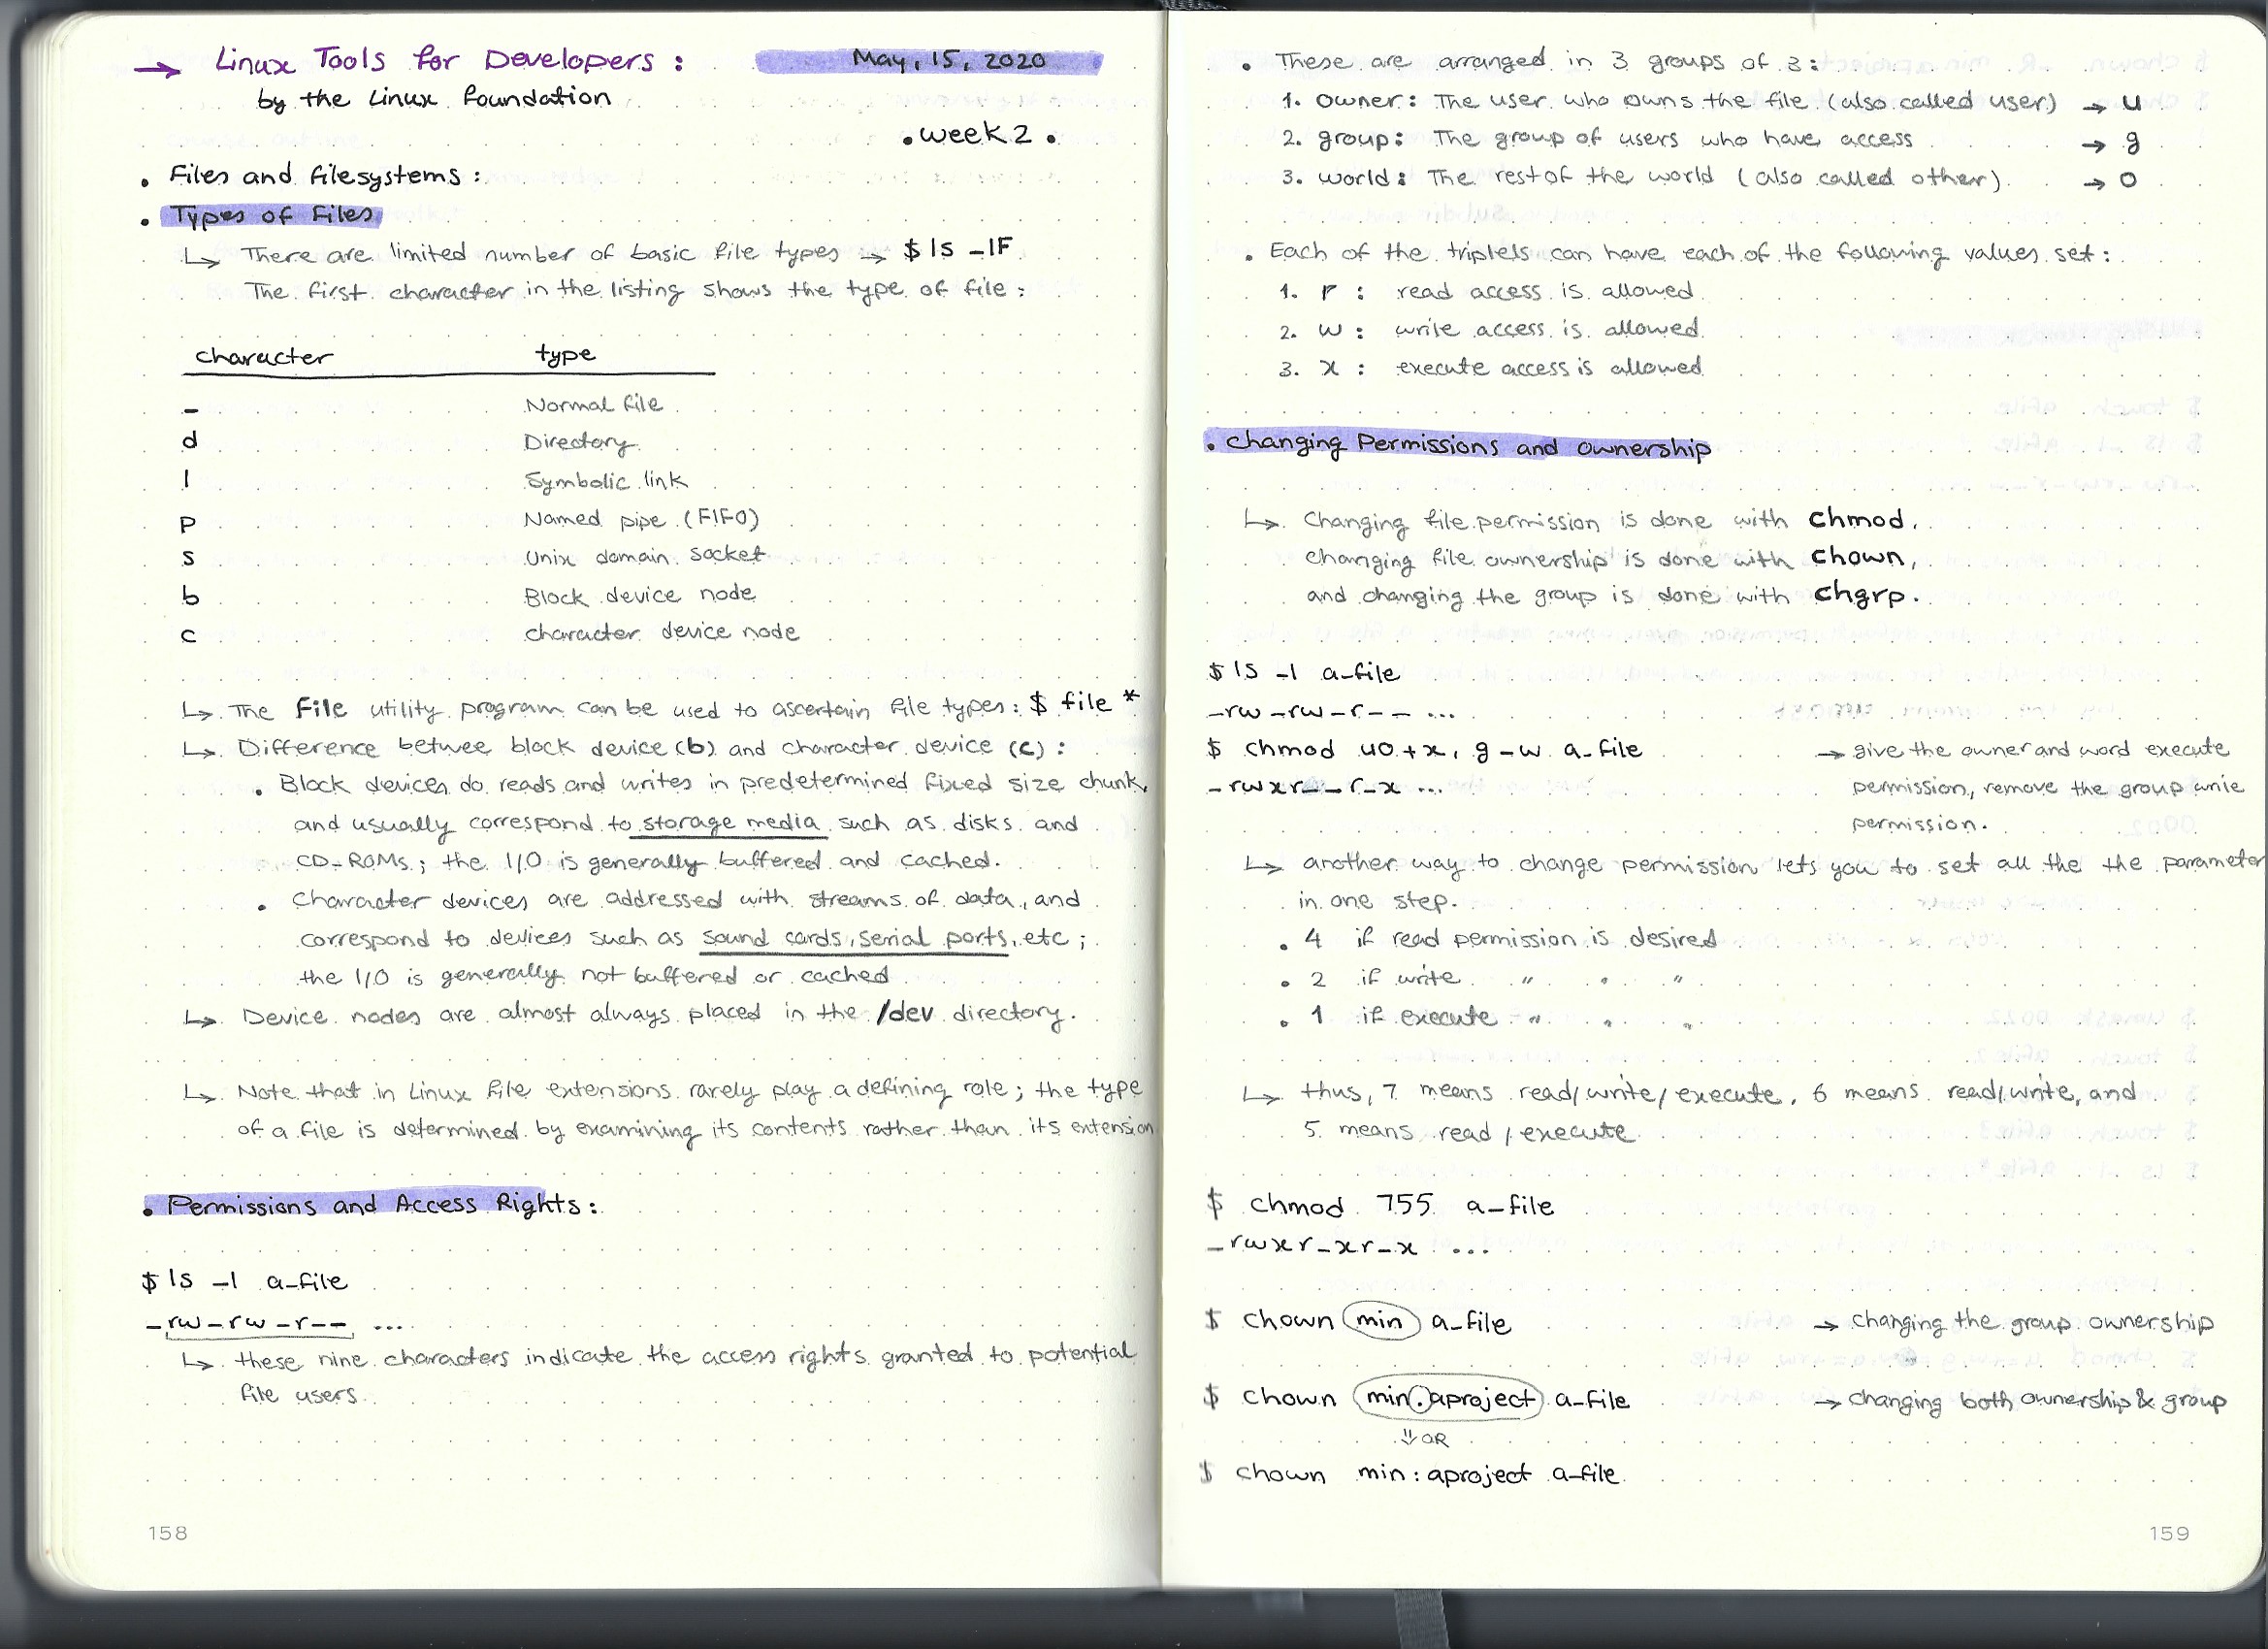 → Linux Tools for Developers : May, 15, 2020
by the Linux foundation
• week 2 •
• Files and filesystems :
• Types of files
↳ There are limited number of basic file types → $ ls -lF
The first character in the listing shows the type of file :
character type
- Normal file
d Directory
l Symbolic link
p Named pipe (FIFO)
s Unix domain socket
b Block device node
c character device node
↳ The File utility program can be used to ascertain file types : $ file *
↳ Difference betwee block device (b) and character device (c) :
• Block devices do reads and writes in predetermined fixed size chunk,
and usually correspond to storage media such as disks and
CD-ROMs ; the I/O is generally buffered and cached.
• Character devices are addressed with streams of data, and
correspond to devices such as sound cards, serial ports, etc ;
the I/O is generally not buffered or cached
↳ Device nodes are almost always placed in the /dev directory.
↳ Note that in Linux file extensions rarely play a defining role ; the type
of a file is determined by examining its contents rather than its extension
• Permissions and Access Rights :
$ ls -l a-file
-rw-rw-r-- ...
↳ these nine characters indicate the access rights granted to potential
file users.
158
• These are arranged in 3 groups of 3 :
1. owner : The user who owns the file (also called user) → u
2. group : The group of users who have access → g
3. world : The rest of the world (also called other) → o
• Each of the triplets can have each of the following values set :
1. r : read access is allowed
2. w : write access is allowed
3. x : execute access is allowed
• Changing Permissions and ownership
↳ Changing file permission is done with chmod,
changing file ownership is done with chown,
and changing the group is done with chgrp.
$ ls -l a-file
-rw-rw-r-- ...
$ chmod uo+x, g-w a-file → give the owner and word execute
-rwxr--r-x ... permission, remove the group write
permission.
↳ another way to change permission lets you to set all the the parameter
in one step.
• 4 if read permission is desired
• 2 if write " " "
• 1 if execute " " "
↳ thus, 7 means read/write/execute, 6 means read/write, and
5 means read/execute
$ chmod 755 a-file
-rwxr-xr-x ...
$ chown min a-file → changing the group ownership
$ chown min.aproject a-file → changing both ownership & group
⇓ OR
$ chown min:aproject a-file
159